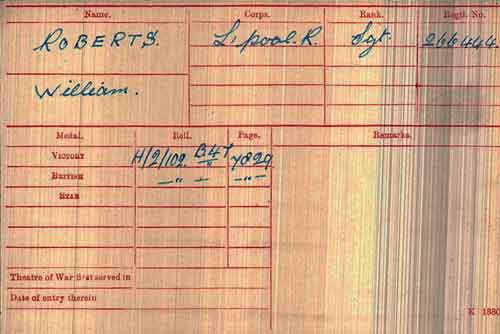 Name. Corps. Rank. Regtl. No.
ROBERTS. L'pool. R. Sgt. 266444.
William.
Medal. Roll. Page. Remarks.
VICTORY H/2/102. B4 7829
BRITISH —"— —"—
STAR
Theatre of War first served in
Date of entry therein
K 1380